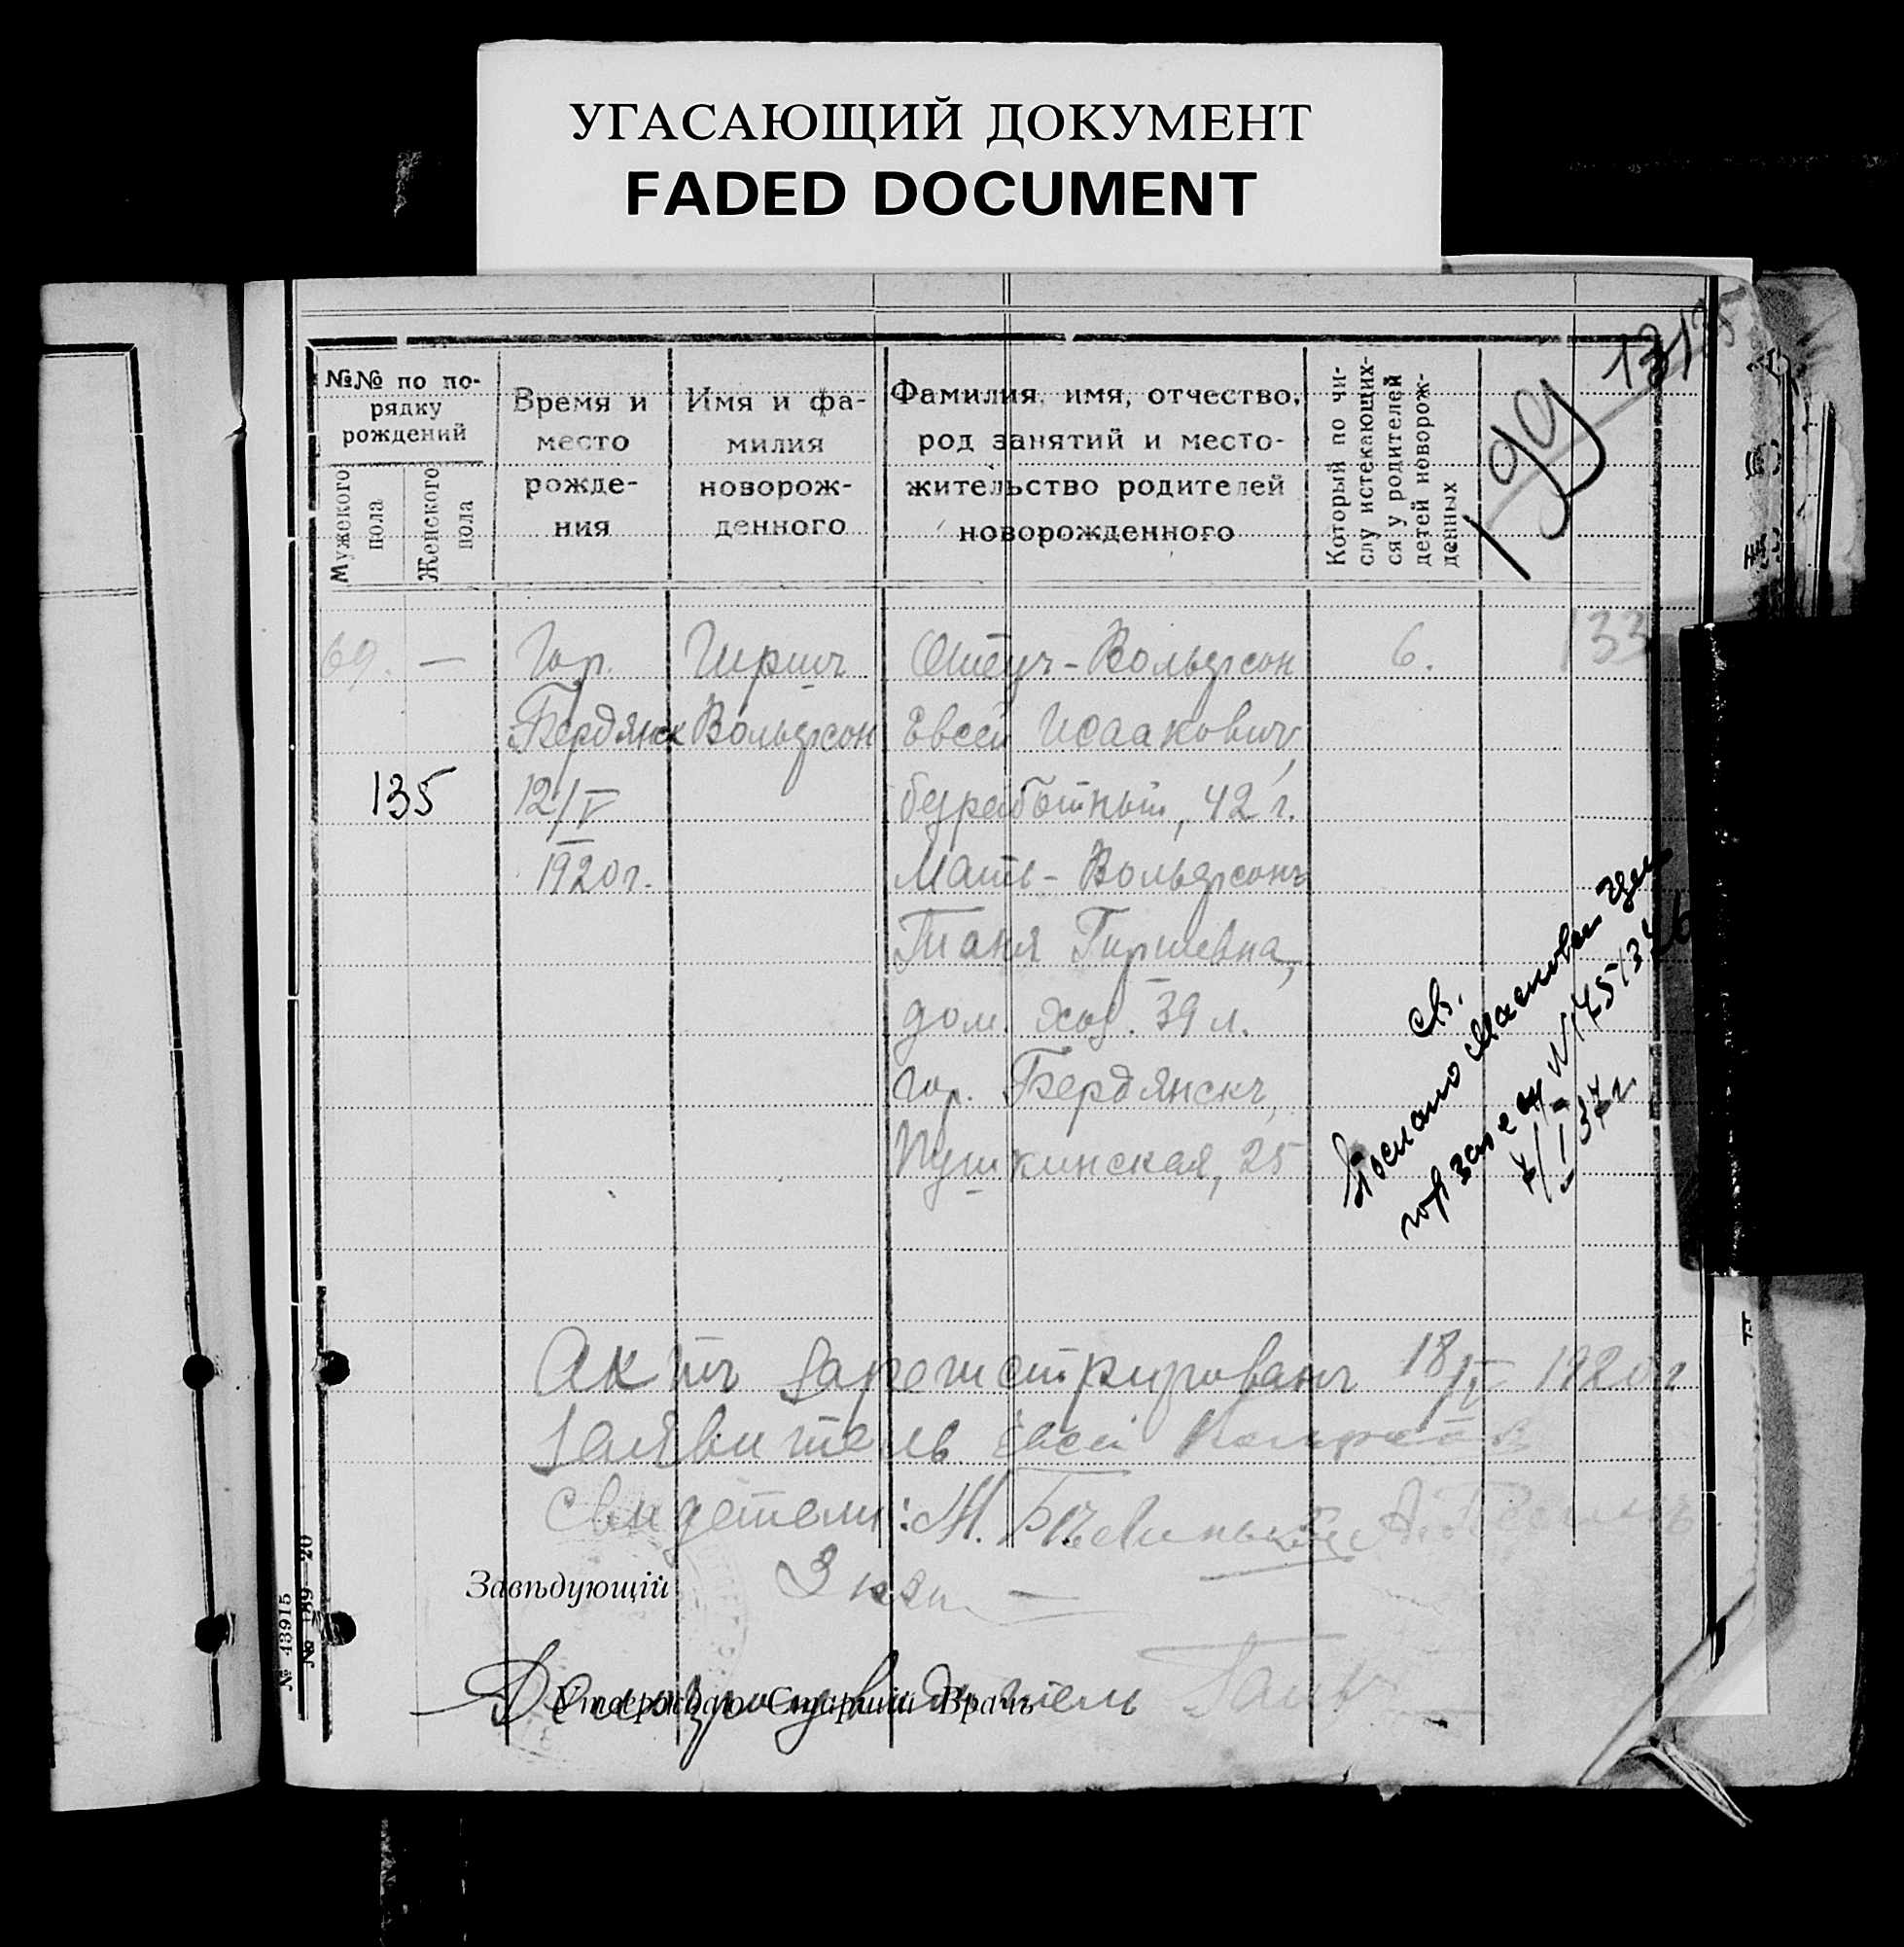 УГАСАЮЩИЙ ДОКУМЕНТ
FADED DOCUMENT
№№ по по-
рядку
рождений
Мужского
пола
Женского
пола
Время и
место
рожде-
ния
Имя и фа-
милия
новорож-
денного
Фамилия, имя, отчество,
род занятий и место-
жительство родителей
новорожденного
Который по чи-
слу истекающих-
ся у родителей
детей новорож-
денных
69. —
Гор.
Бердянск
12/V
1920 г.
Гирш
Вольфсон
Отец - Вольфсон
Евсей Исаакович,
безработный, 42 г.
Мать - Вольфсонъ
Таня Гиршевна,
дом. хоз. 39 л.
гор. Бердянскъ,
Пушкинская, 25
6.
133
135
Св.
Послано
гор
I 37 г
Актъ зарегистрированъ 18/V 1920 г
Заявитель Евсей
Свидетели: М.
Завѣдующій
Утверждаю Старшій Врачъ
Делопроизводитель
№ 43915